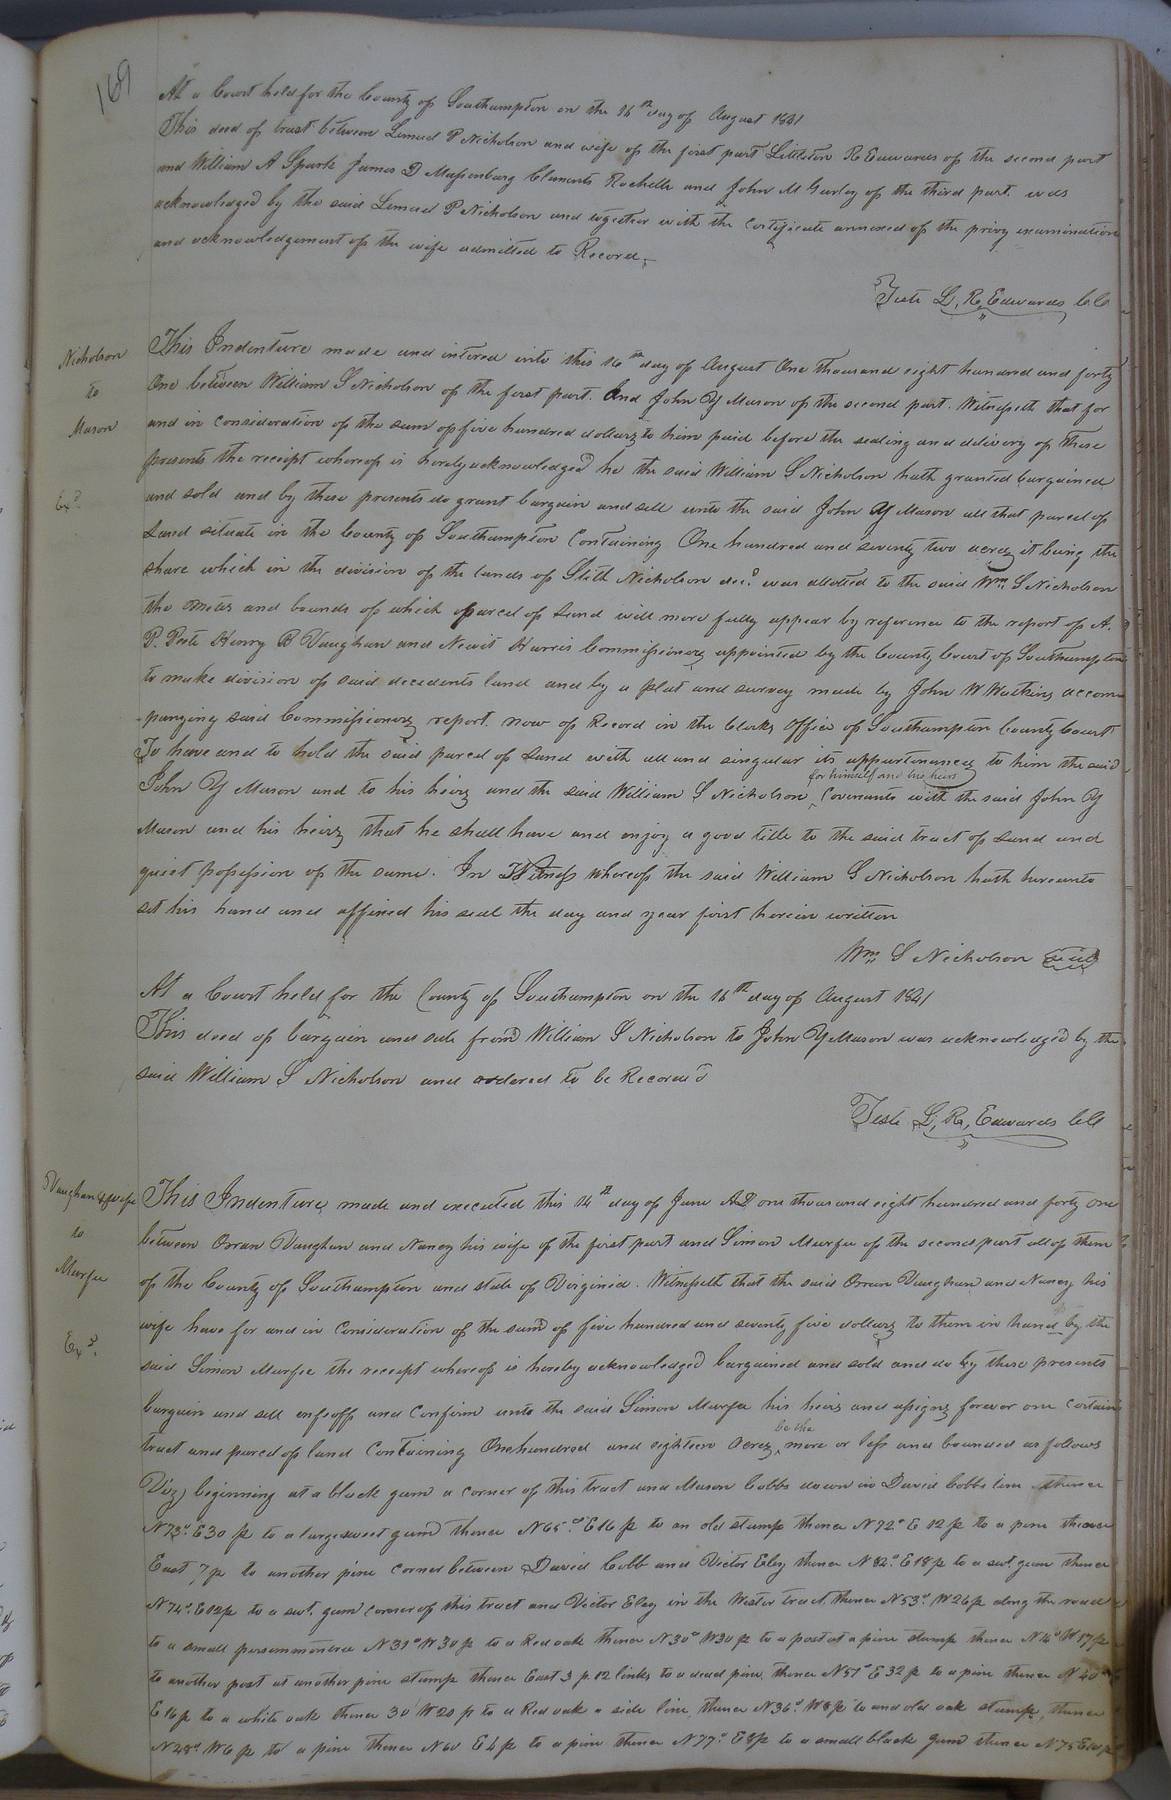 169
At a Court held for the County of Southampton on the 16th day of August 1841
This deed of trust between Lemuel P Nicholson and wife of the first part Littleton R Edwards of the second part
and William A Spark James D Massenburg Clements Rochelle and John M Gurley of the third part was
acknowledged by the said Lemuel P Nicholson and together with the Certificate annexed of the privy examination
and acknowledgement of the wife admitted to Record,
Teste L, R, Edwards C.C.
Nicholson
to
Mason
Exd.
This Indenture made and intered into this 16th day of August One thousand eight hundred and forty
One between William S Nicholson of the first part. And John Y Mason of the second part. Witnesseth that for
and in consideration of the sum of five hundred dollars to him paid before the sealing and delivery of these
presents the receipt whereof is hereby acknowledged he the said William S Nicholson hath granted bargained
and sold and by these presents do grant bargain and sell unto the said John Y Mason all that parcel of
Land situate in the County of Southampton Containing One hundred and seventy two acres it being the
share which in the division of the lands of Flith Nicholson decd. was alloted to the said Wm S Nicholson
the metes and bounds of which parcel of Land will more fully appear by reference to the report of A.
P. Peete Henry B Vaughan and Newit Harris Commissioners appointed by the County Court of Southampton
to make division of said decedents land and by a plat and survey made by John W Watkins accom
-panying said Commissioners report. now of Record in the Clerks Office of Southampton County Court
To have and to hold the said parcel of Land with all and singular its appurtenances to him the said
for himself and his heirs
John Y Mason and to his heirs and the said William S Nicholson, Covenants with the said John Y
Mason and his heirs that he shall have and enjoy a good title to the said tract of Land and
quiet possession of the same. In Witness Whereof the said William S Nicholson hath hereunto
set his hand and affixed his seal the day and year first herein written
Wm S Nicholson seal
At a Court held for the County of Southampton on the 16th day of August 1841
This deed of bargain and sale from William S Nicholson to John Y Mason was acknowledged by the
said William S Nicholson and ordered to be Record'd
Teste L, R, Edwards C.C.
Vaughan & wife
to
Murfee
Exd.
This Indenture, made and executed this 14th day of June AD one thousand eight hundred and forty one
between Orran Vaughan and Nancy his wife of the first part and Simon Murfee of the second part all of them
of the County of Southampton and state of Virginia. Witnesseth that the said Orran Vaughan and Nancy his
wife have for and in Consideration of the sum of five hundred and seventy five dollars to them in hand by the
said Simon Murfee the receipt whereof is hereby acknowledged bargained and sold and do by these presents
bargain and sell enfeoff and Confirm unto the said Simon Murfee his heirs and assigns forever one certain
be the
tract and parcel of land Containing One hundred and eighteen acres, more or less and bounded as follows
Viz, beginning at a black gum a corner of this tract and Mason Cobbs down in David Cobbs line thence
N73°. E30 p to a large sweet gum thence N65°. E16 p to an old stump thence N72° E 12 p to a pine thence
East 7 p to another pine corner between David Cobb and Victor Eley thence N82°. E18 p to a swt. gum thence
N74°. E12p to a swt. gum corner of this tract and Victor Eley in the Wester tract, thence N53°. W26 p along the road
to a small persimmon N39° W30 p to a Red oak thence N30° W30 p to a post at a pine stump thence N14° W17 p
to another post at another pine stump thence East 3 p. 12 links to a dead pine, thence N51° E32 p to a pine thence N40°
E16 p to a white oak thence 30 W20 p to a Red oak a side line, thence N36°. W8 p to and old oak stump, thence
N28°. W6 p to a pine thence N60 E4 p to a pine thence N77°. E8p to a small black gum thence N75